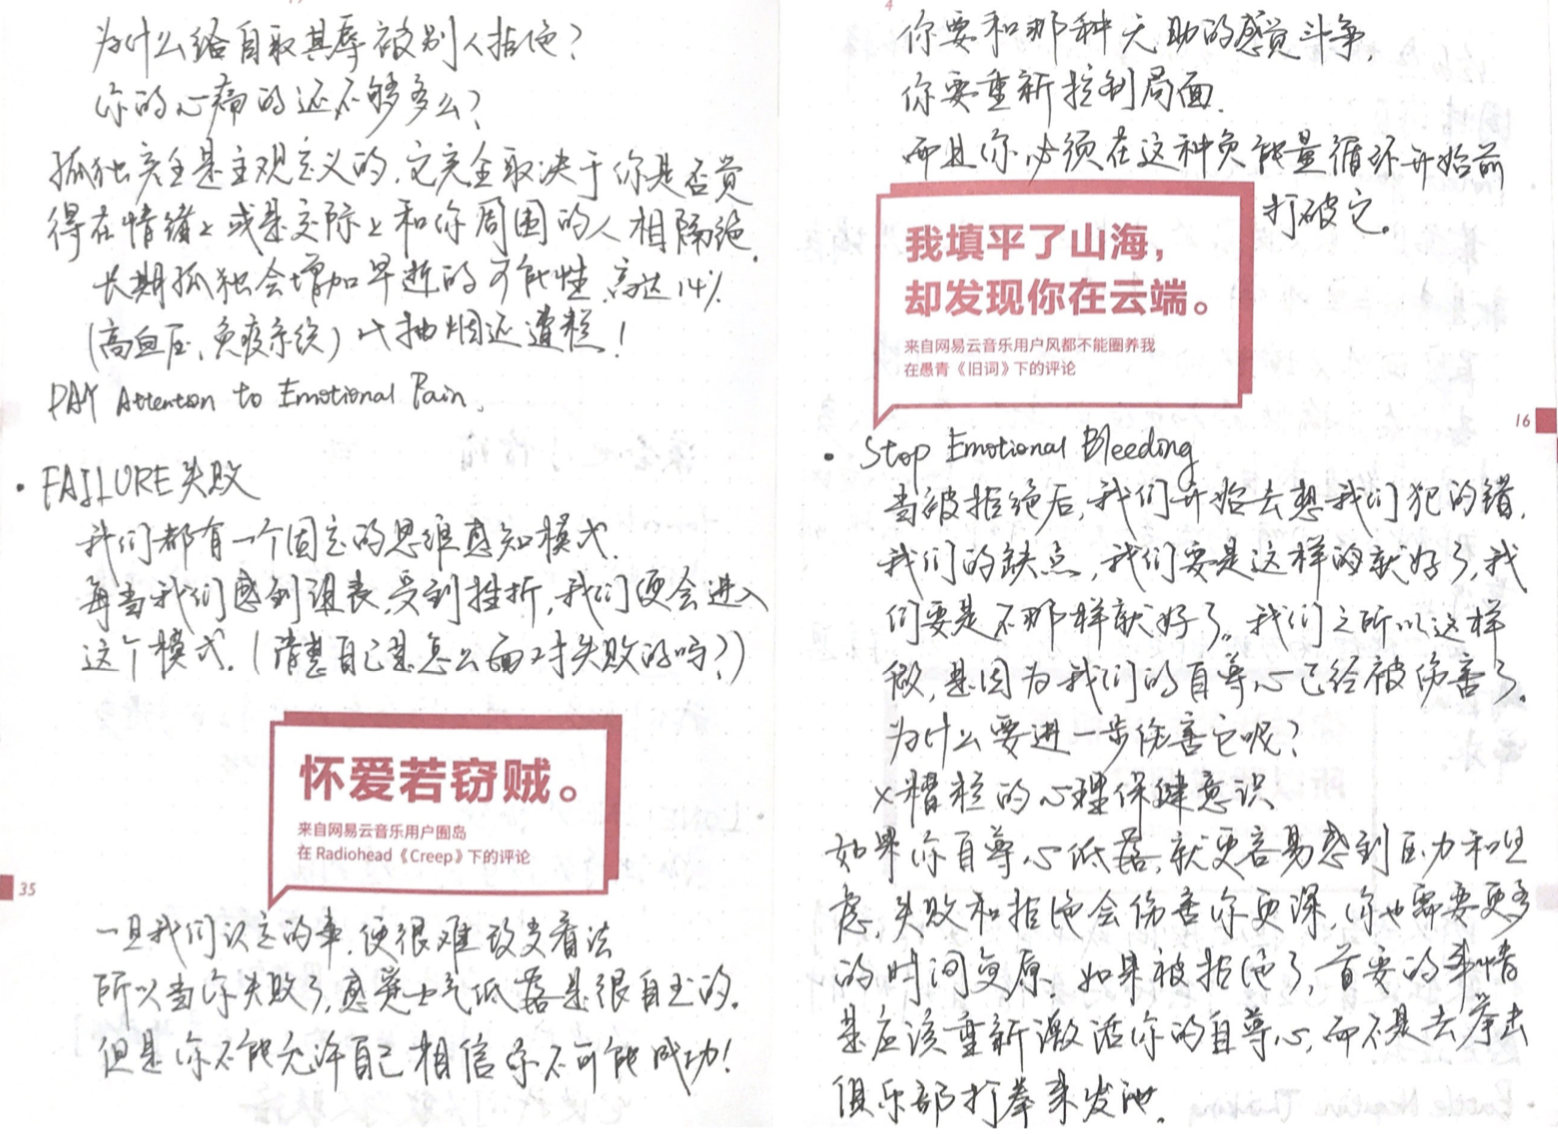 为什么给自取其辱被别人拒绝?
你的心痛的还不够多么?
孤独完全是主观意义的,它完全取决于你是否觉
得在情绪上或是交际上和你周围的人相隔绝.
长期孤独会增加早逝的可能性.高达14%
(高血压、免疫系统)比抽烟还遭糕!
PAY Attention to Emotional Pain.
• FAILURE 失败
我们都有一个固定的思维感知模式.
每当我们感到沮丧,受到挫折,我们便会进入
这个模式.(清楚自己是怎么面对失败的吗?)
怀爱若窃贼。
来自网易云音乐用户囿岛
在 Radiohead《Creep》下的评论
35
一旦我们认定的事,便很难改变看法
所以当你失败了,感觉士气低落是很自主的.
但是你不能允许自己相信你不可能成功!
4
你要和那种无助的感觉斗争,
你要重新控制局面.
而且你必须在这种负能量循环开始前
打破它。
我填平了山海,
却发现你在云端。
来自网易云音乐用户风都不能圈养我
在愚青《旧词》下的评论
16
• Stop Emotional Bleeding
当被拒绝后,我们开始去想我们犯的错.
我们的缺点,我们要是这样的就好了,我
们要是不那样就好了。我们之所以这样
做,是因为我们的自尊心已经被伤害了.
为什么要进一步伤害它呢?
×糟糕的心理保健意识
如果你自尊心低落,就更容易感到压力和但
虑,失败和拒绝会伤害你更深,你也需要更多
的时间复原.如果被拒绝了,首要的事情
是应该重新激活你的自尊心,而不是去拳击
俱乐部打拳来发泄.